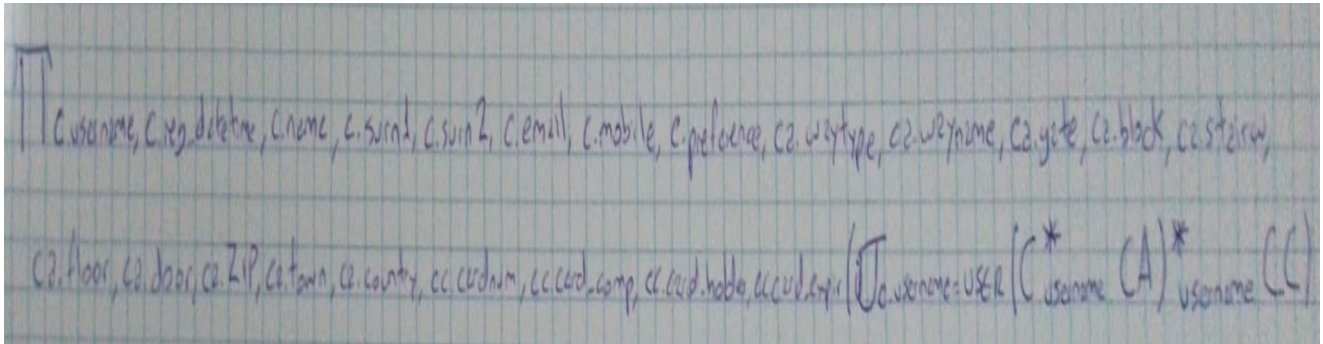 ∏ c.username, c.reg_datetime, c.name, c.surn1, c.surn2, c.email, c.mobile, c.preference, ca.waytype, ca.wayname, ca.gate, ca.block, ca.stairw,
ca.floor, ca.door, ca.ZIP, ca.town, ca.country, cc.cardnum, cc.card_comp, cc.card_holder, cc.card_expir (σ c.username=USER (C * username CA) * username CC)